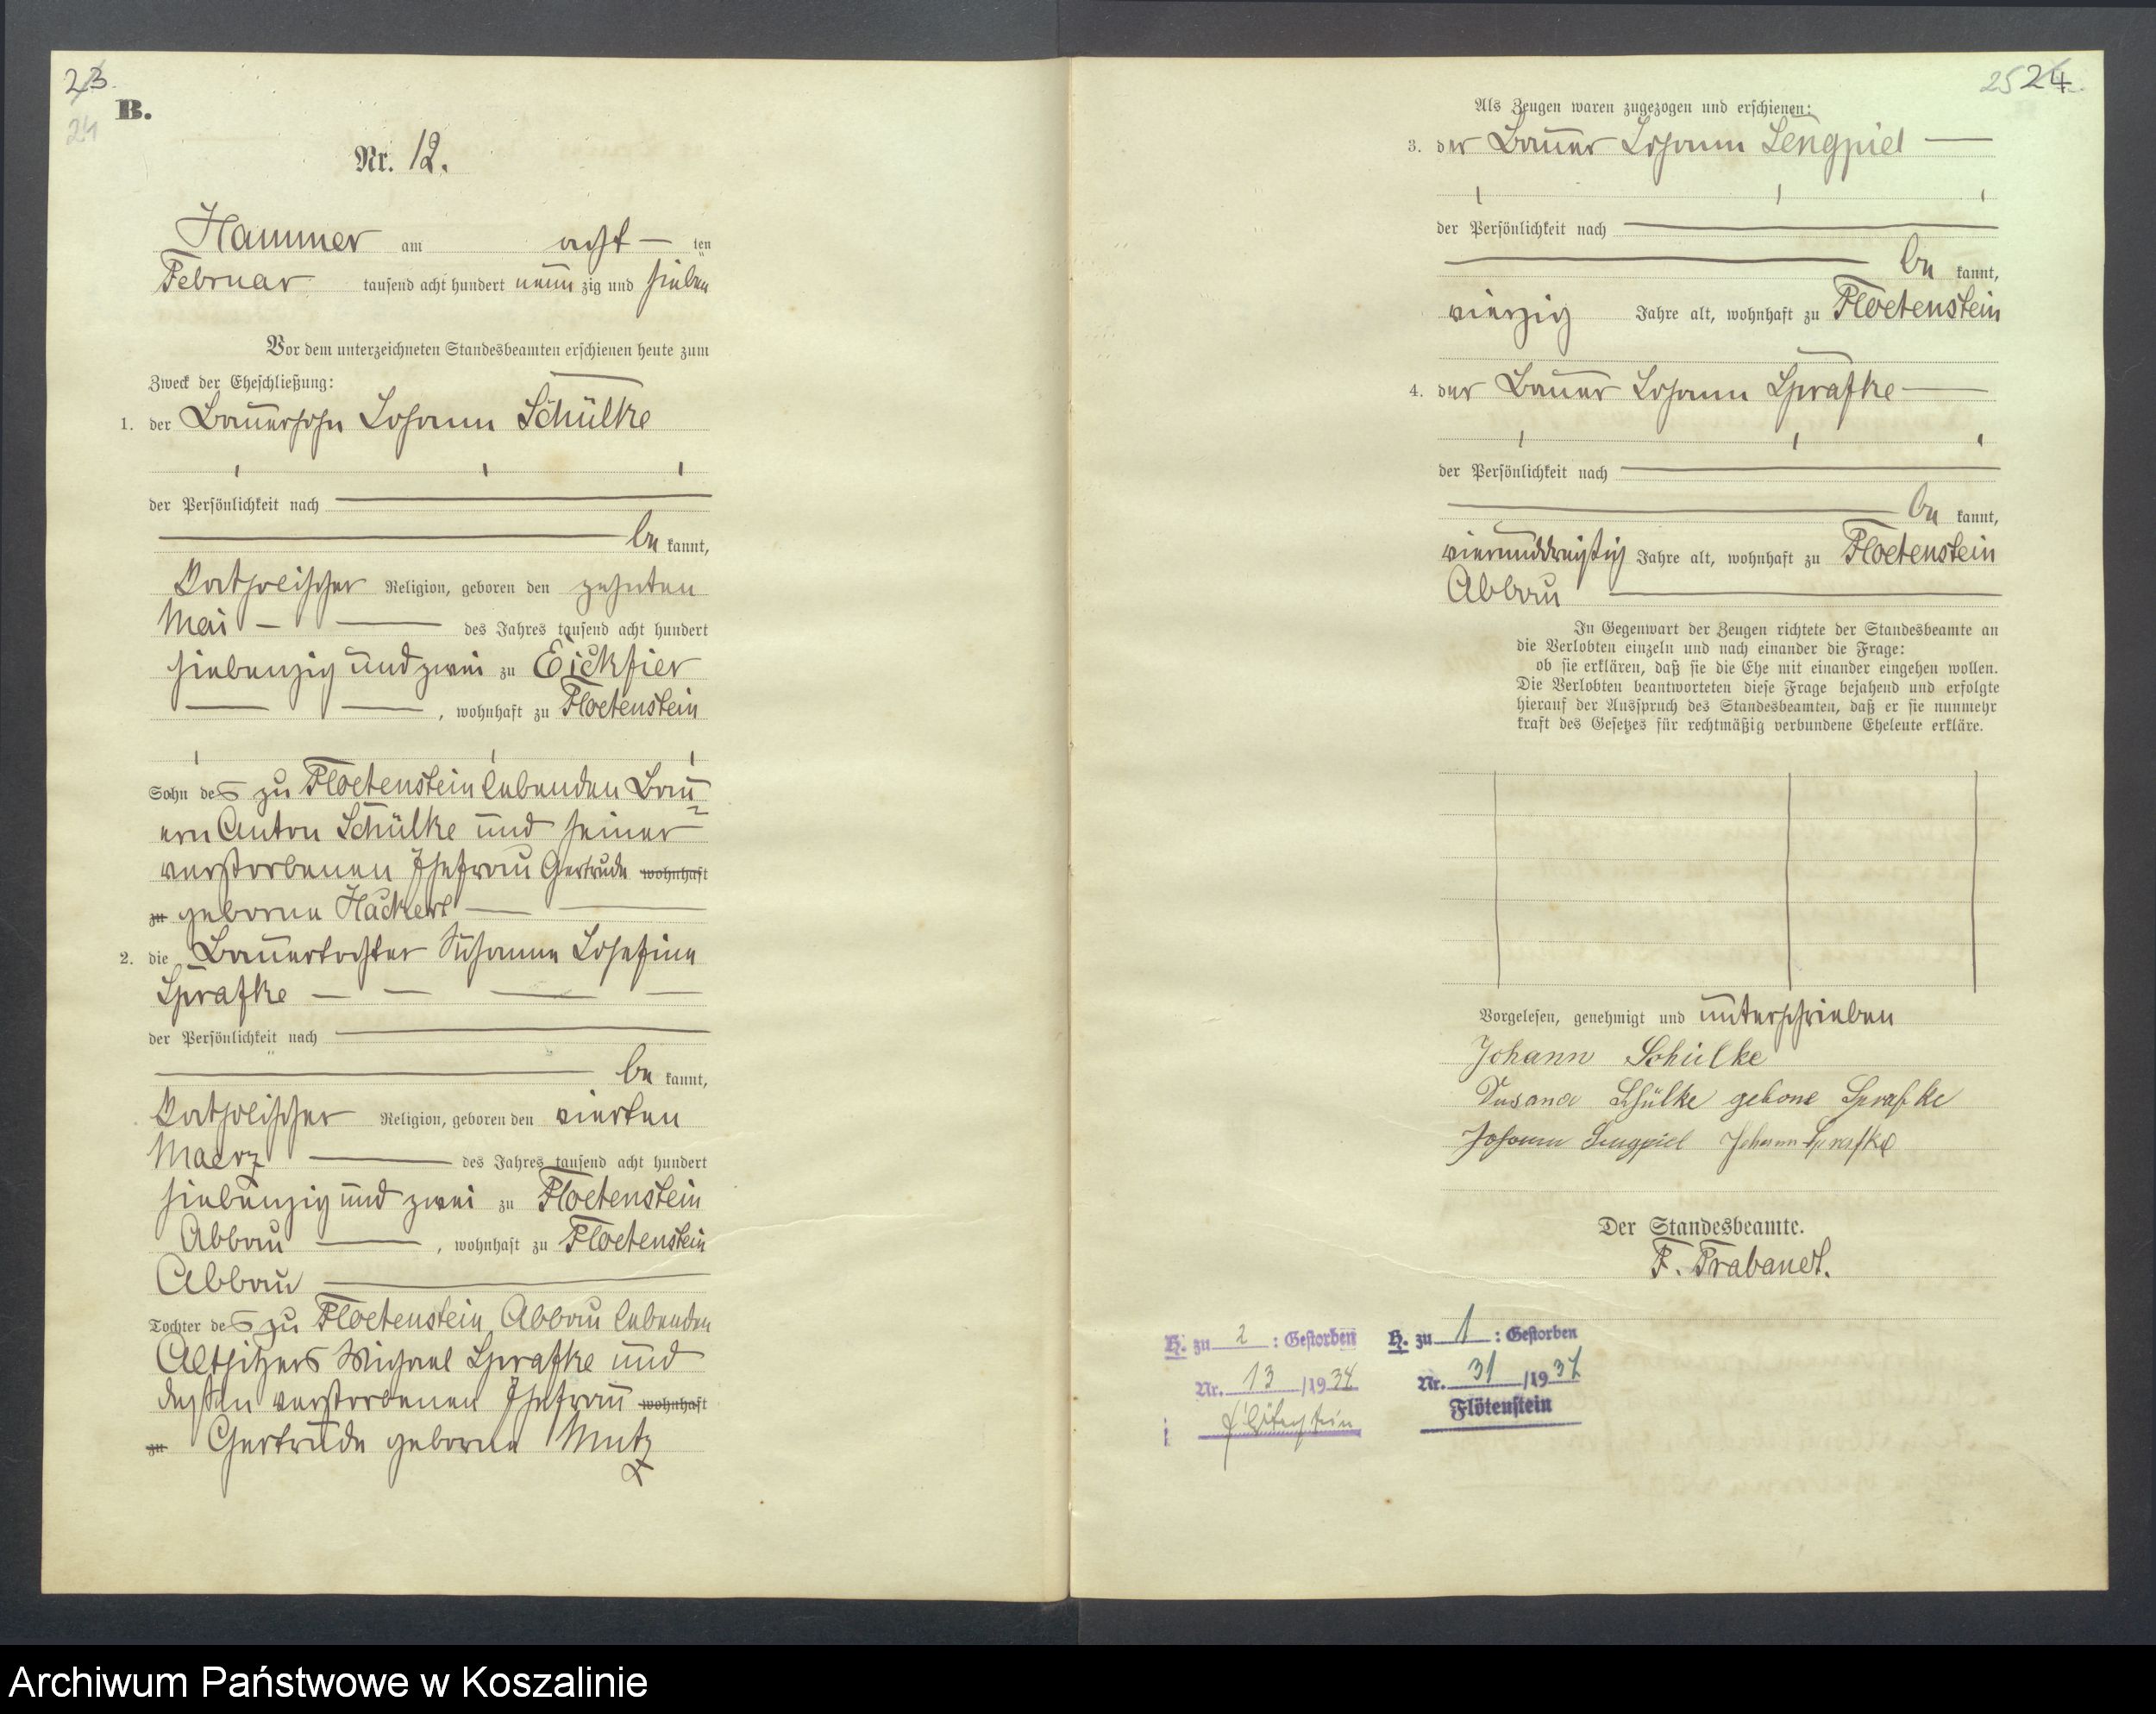 23.
24
B.
Nr. 12.
Hammer am acht — ten
Februar tausend acht hundert neun zig und sieben
Vor dem unterzeichneten Standesbeamten erschienen heute zum
Zweck der Eheschließung:
1. der Bauersohn Johann Schülke
der Persönlichkeit nach
be kannt,
katholischer Religion, geboren den zehnten
Mai — — des Jahres tausend acht hundert
siebenzig und zwei zu Eickfier
— —, wohnhaft zu Floetenstein
Sohn des zu Floetenstein lebenden Bau-
ern Anton Schülke und seiner
verstorbenen Ehefrau Gertrude wohnhaft
zu geborne Hackert —
2. die Bauertochter Susanna Josefine
Sprafke — — — —
der Persönlichkeit nach
be kannt,
katholischer Religion, geboren den vierten
Maerz — des Jahres tausend acht hundert
siebenzig und zwei zu Floetenstein
Abbau —, wohnhaft zu Floetenstein
Abbau —
Tochter des zu Floetenstein Abbau lebenden
Altsitzers Michael Sprafke und
dessen verstorbenen Ehefrau wohnhaft
zu Gertrude geborne Mutz
25 24.
Als Zeugen waren zugezogen und erschienen:
3. der Bauer Johann Lengpiel —
der Persönlichkeit nach
be kannt,
vierzig Jahre alt, wohnhaft zu Floetenstein
4. der Bauer Johann Sprafke —
der Persönlichkeit nach
be kannt,
vierunddreißig Jahre alt, wohnhaft zu Floetenstein
Abbau —
In Gegenwart der Zeugen richtete der Standesbeamte an
die Verlobten einzeln und nach einander die Frage:
ob sie erklären, daß sie die Ehe mit einander eingehen wollen.
Die Verlobten beantworteten diese Frage bejahend und erfolgte
hierauf der Ausspruch des Standesbeamten, daß er sie nunmehr
kraft des Gesetzes für rechtmäßig verbundene Eheleute erkläre.
Vorgelesen, genehmigt und unterschrieben
Johann Schülke
Susana Schülke gebone Sprafke
Johann Lengpiel Johann Sprafke
Der Standesbeamte.
F. Trabandt.
H. zu 2 : Gestorben
Nr. 13 /1934
Flötenstein
H. zu 1 : Gestorben
Nr. 31 /1937
Flötenstein
Archiwum Państwowe w Koszalinie